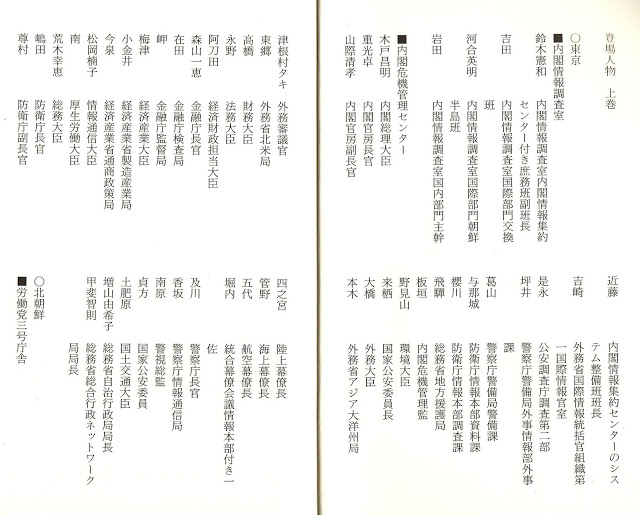 登場人物　上巻
○東京
■内閣情報調査室
鈴木憲和　内閣情報調査室内閣情報集約
センター付き庶務班副班長
吉田　内閣情報調査室国際部門交換
班
河合英明　内閣情報調査室国際部門朝鮮
半島班
岩田　内閣情報調査室国内部門主幹
■内閣危機管理センター
木戸昌明　内閣総理大臣
重光卓　内閣官房長官
山際清孝　内閣官房副長官
近藤　内閣情報集約センターのシス
テム整備班班長
吉崎　外務省国際情報統括官組織第
一国際情報官室
是永　公安調査庁調査第二部
坪井　警察庁警備局外事情報部外事
課
葛山　警察庁警備局警備課
与那城　防衛庁情報本部資料課
櫻川　防衛庁情報本部調査課
飛騨　総務省地方援護局
板垣　内閣危機管理監
野見山　環境大臣
来栖　国家公安委員長
大橋　外務大臣
本木　外務省アジア大洋州局
津根村タキ　外務審議官
東郷　外務省北米局
高橋　財務大臣
永野　法務大臣
阿刀田　経済財政担当大臣
森山一恵　金融庁長官
在田　金融庁検査局
岬　金融庁監督局
梅津　経済産業大臣
小金井　経済産業省製造産業局
今泉　経済産業省通商政策局
松岡楠子　情報通信大臣
南　厚生労働大臣
荒木幸恵　総務大臣
嶋田　防衛庁長官
尊村　防衛庁副長官
四之宮　陸上幕僚長
管野　海上幕僚長
五代　航空幕僚長
堀内　統合幕僚会議情報本部付き一
佐
及川　警察庁長官
香坂　警察庁情報通信局
南原　警視総監
貞方　国家公安委員
土肥原　国土交通大臣
増山由希子　総務省自治行政局局長
甲斐智則　総務省総合行政ネットワーク
局局長
○北朝鮮
■労働党三号庁舎